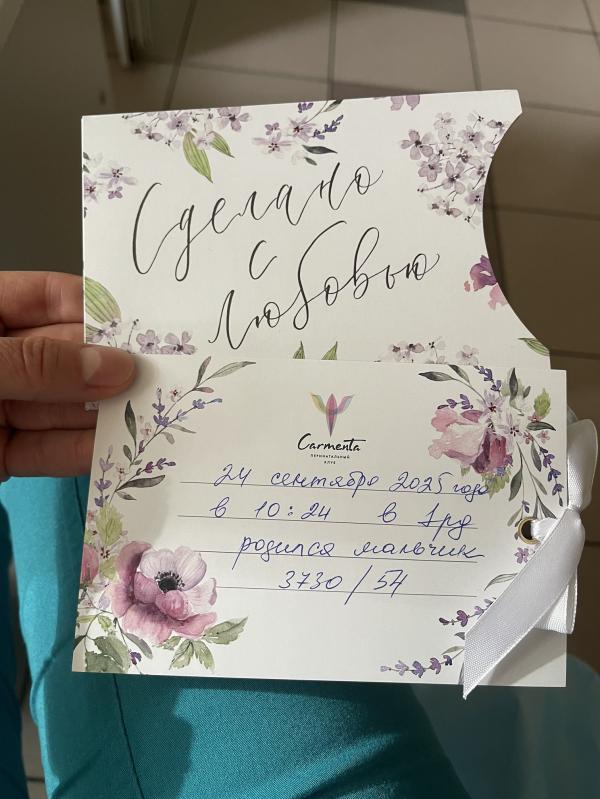 Сделано
с
любовью
Carmenta
ПЕРИНАТАЛЬНЫЙ
КЛУБ
24 сентября 2025 года
в 10:24 в 1рд
родился мальчик
3730/54